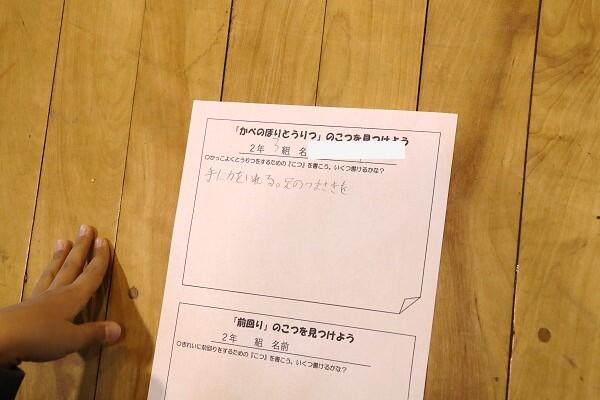 「かべのぼりとうりつ」のこつを見つけよう
2年 3組 名
○かっこよくとうりつをするための『こつ』を書こう。いくつ書けるかな？
手に力をいれる。足のつまさきを
「前回り」のこつを見つけよう
2年 組 名前
○きれいに前回りをするための『こつ』を書こう。いくつ書けるかな？